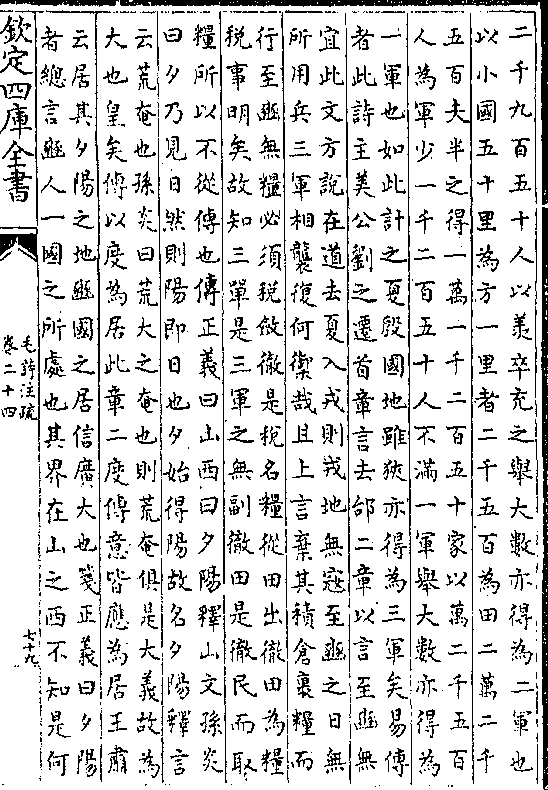 二千九百五十人以羨卒充之舉大數亦得為二軍也
以小國五十里為方一里者二千五百為田二萬二千
五百夫半之得一萬一千二百五十家以萬二千五百
人為軍少一千二百五十人不滿一軍舉大數亦得為
一軍也如此計之夏殷國地雖狹亦得為三軍矣易傳
者此詩主美公劉之遷首章言去邰二章以言至豳無
宜此文方說在道去夏入戎則戎地無寇至豳之日無
所用兵三軍相襲復何禦哉且上言棄其積倉裹糧而
行至豳無糧必須稅斂徹是稅名糧從田出徹田為糧
稅事明矣故知三單是三軍之無副徹田是徹民而取
糧所以不從傳也傳正義曰山西曰夕陽釋山文孫炎
曰夕乃見日然則陽即日也夕始得陽故名夕陽釋言
云荒奄也孫炎曰荒大之奄也則荒奄俱是大義故為
大也皇矣傳以度為居此章二度傳意皆應為居王肅
云居其夕陽之地豳國之居信廣大也箋正義曰夕陽
者總言豳人一國之所處也其界在山之西不知是何
欽定四庫全書
毛詩注疏
卷二十四
七十九